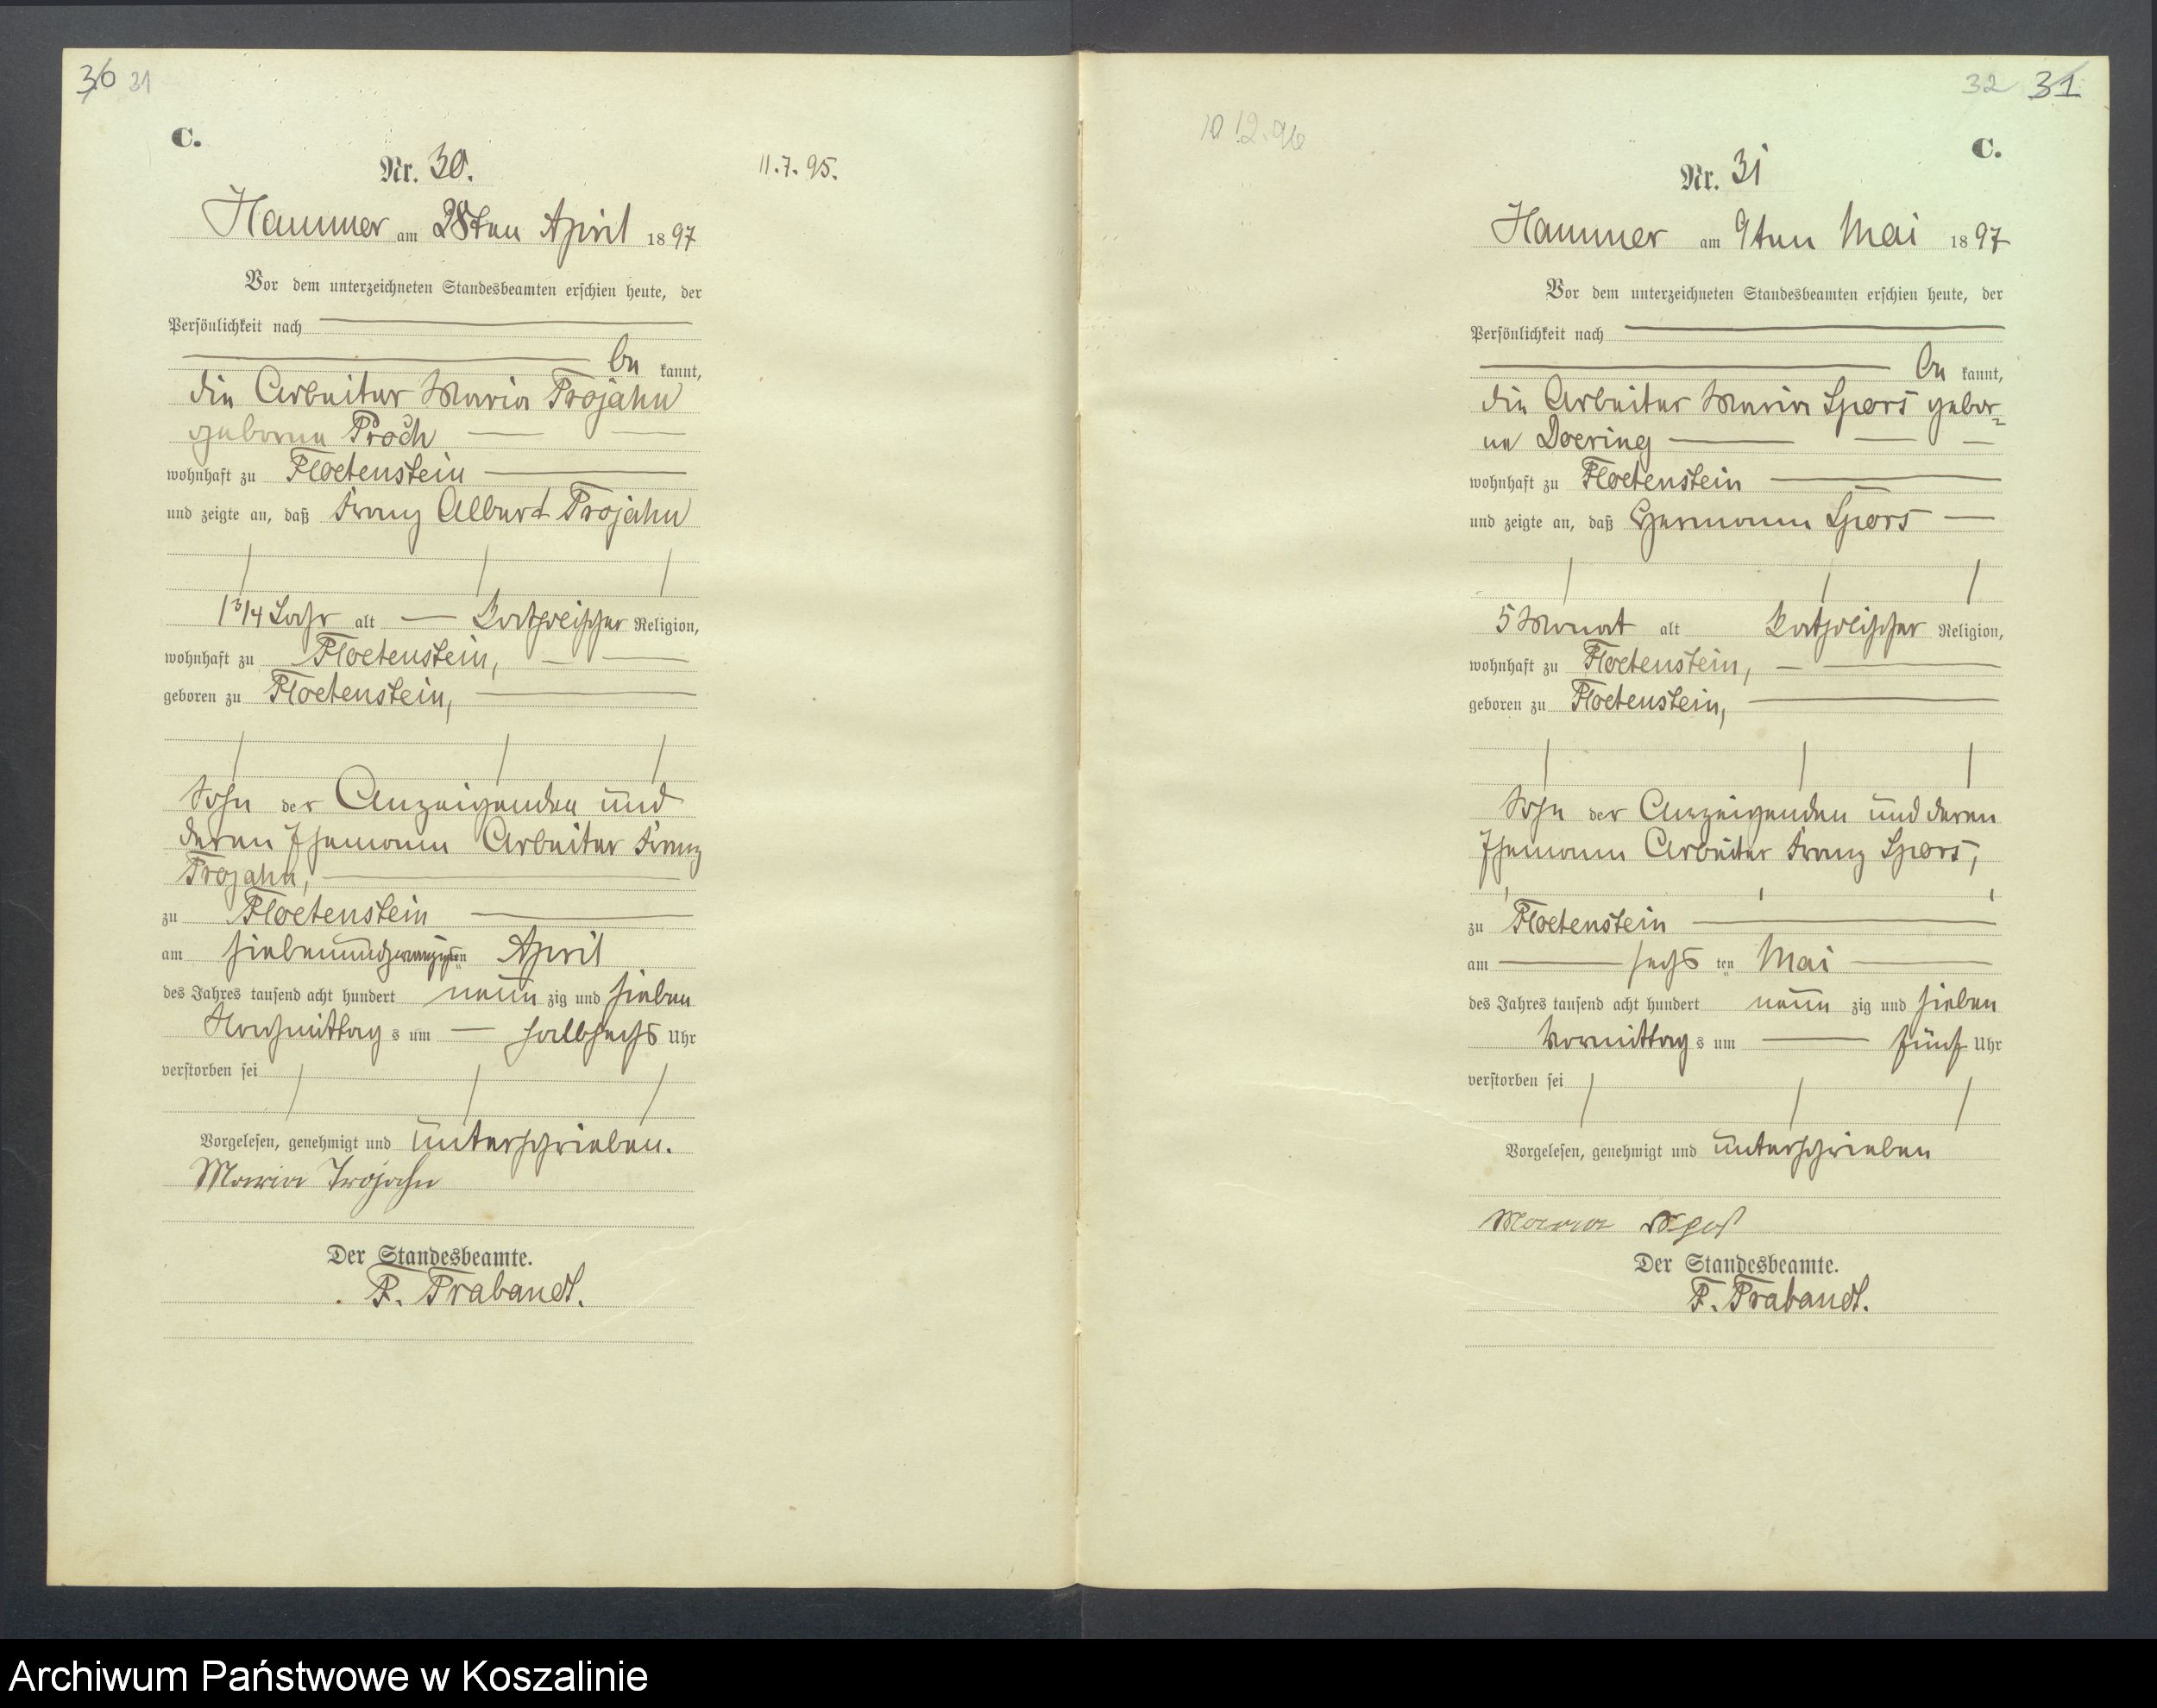 30 31
C.
Nr. 30.
11.7.95.
Hammer am 28ten April 1897
Vor dem unterzeichneten Standesbeamten erschien heute, der
Persönlichkeit nach
be kannt,
die Arbeiter Maria Trojahn
geborne Proch
wohnhaft zu Floetenstein
und zeigte an, daß Franz Albert Trojahn
1 3/4 Jahr alt — katholischer Religion,
wohnhaft zu Floetenstein,
geboren zu Floetenstein,
Sohn der Anzeigenden und
deren Ehemann Arbeiter Franz
Trojahn,
zu Floetenstein
am siebenundzwanzigsten April
des Jahres tausend acht hundert neun zig und sieben
Nachmittag s um — halbsechs Uhr
verstorben sei
Vorgelesen, genehmigt und unterschrieben.
Maria Trojahn
Der Standesbeamte.
F. Trabandt.
32 31
10 12.96
C.
Nr. 31
Hammer am 9ten Mai 1897
Vor dem unterzeichneten Standesbeamten erschien heute, der
Persönlichkeit nach
be kannt,
die Arbeiter Maria Spors gebor-
ne Doering
wohnhaft zu Floetenstein
und zeigte an, daß Hermann Spors —
5 Monat alt katholischer Religion,
wohnhaft zu Floetenstein,
geboren zu Floetenstein,
Sohn der Anzeigenden und deren
Ehemann Arbeiter Franz Spors,
zu Floetenstein
am sechs ten Mai
des Jahres tausend acht hundert neun zig und sieben
Vormittag s um fünf Uhr
verstorben sei
Vorgelesen, genehmigt und unterschrieben
Maria
Der Standesbeamte.
F. Trabandt.
Archiwum Państwowe w Koszalinie